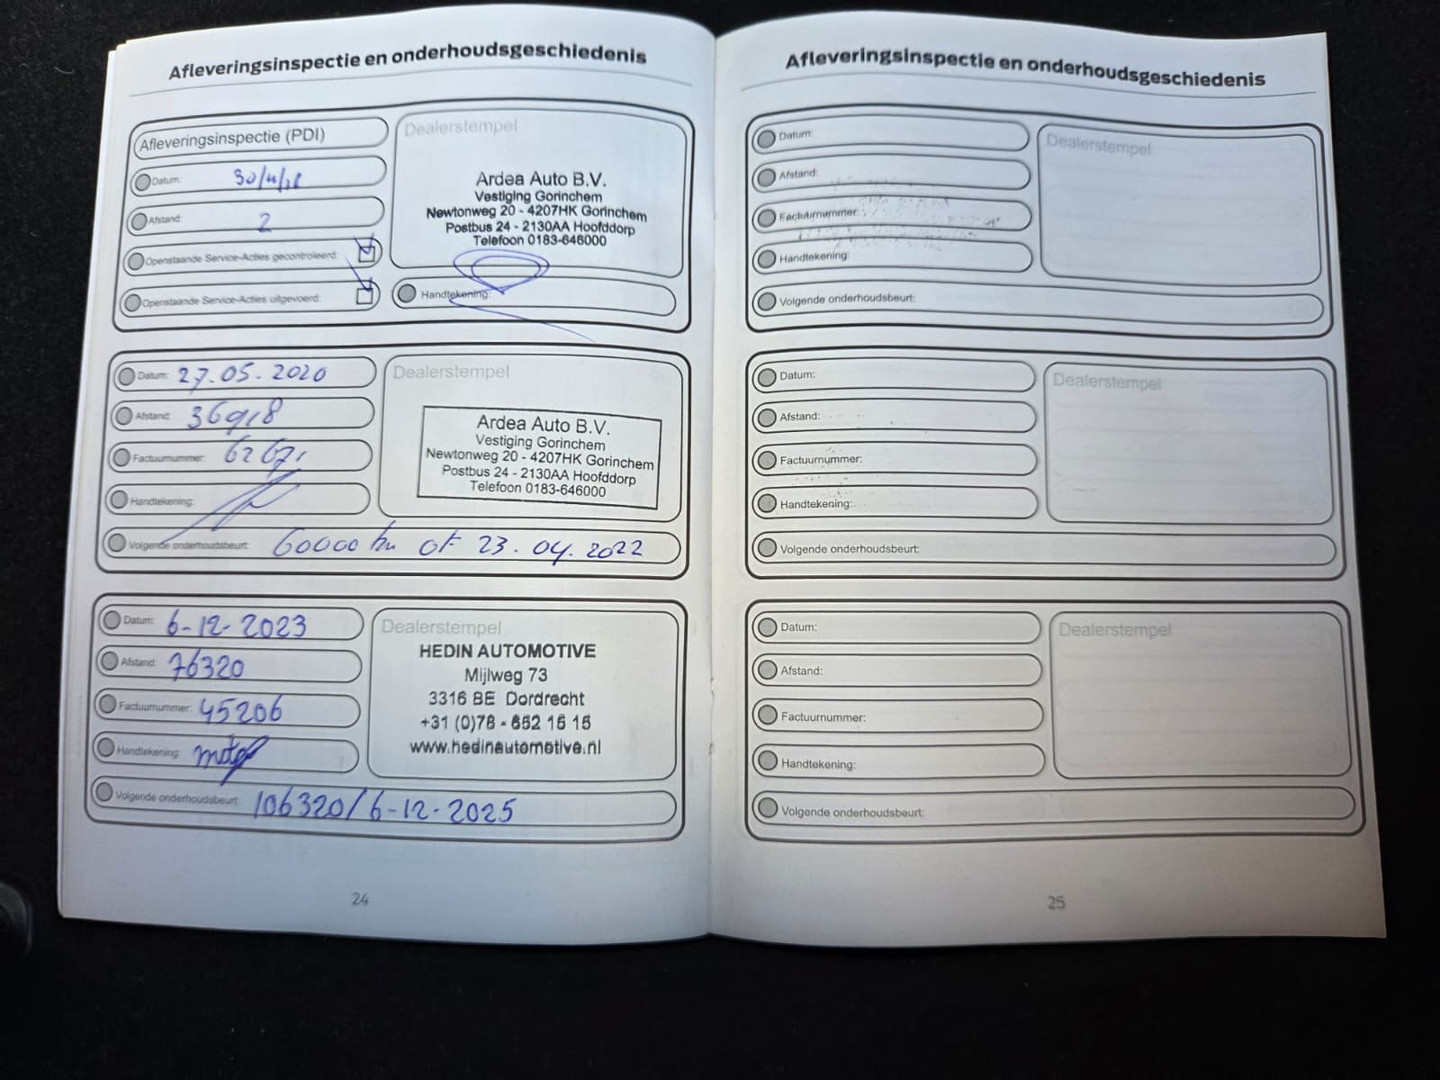 Afleveringsinspectie en onderhoudsgeschiedenis
Afleveringsinspectie (PDI)
Datum:
Afstand: 2
Openstaande Service-Acties gecontroleerd:
Openstaande Service-Acties uitgevoerd:
Dealerstempel
Ardea Auto B.V.
Vestiging Gorinchem
Newtonweg 20 - 4207HK Gorinchem
Postbus 24 - 2130AA Hoofddorp
Telefoon 0183-646000
Handtekening:
Datum: 27.05.2020
Afstand: 36918
Factuurnummer:
Handtekening:
Dealerstempel
Ardea Auto B.V.
Vestiging Gorinchem
Newtonweg 20 - 4207HK Gorinchem
Postbus 24 - 2130AA Hoofddorp
Telefoon 0183-646000
Volgende onderhoudsbeurt: 60000 km of 23.04.2022
Datum: 6-12-2023
Afstand: 76320
Factuurnummer: 45206
Handtekening:
Dealerstempel
HEDIN AUTOMOTIVE
Mijlweg 73
3316 BE Dordrecht
+31 (0)78 - 652 15 15
www.hedinautomotive.nl
Volgende onderhoudsbeurt: 106320/6-12-2025
24
Afleveringsinspectie en onderhoudsgeschiedenis
Datum:
Afstand:
Factuurnummer:
Handtekening:
Dealerstempel
Volgende onderhoudsbeurt:
Datum:
Afstand:
Factuurnummer:
Handtekening:
Dealerstempel
Volgende onderhoudsbeurt:
Datum:
Afstand:
Factuurnummer:
Handtekening:
Dealerstempel
Volgende onderhoudsbeurt:
25